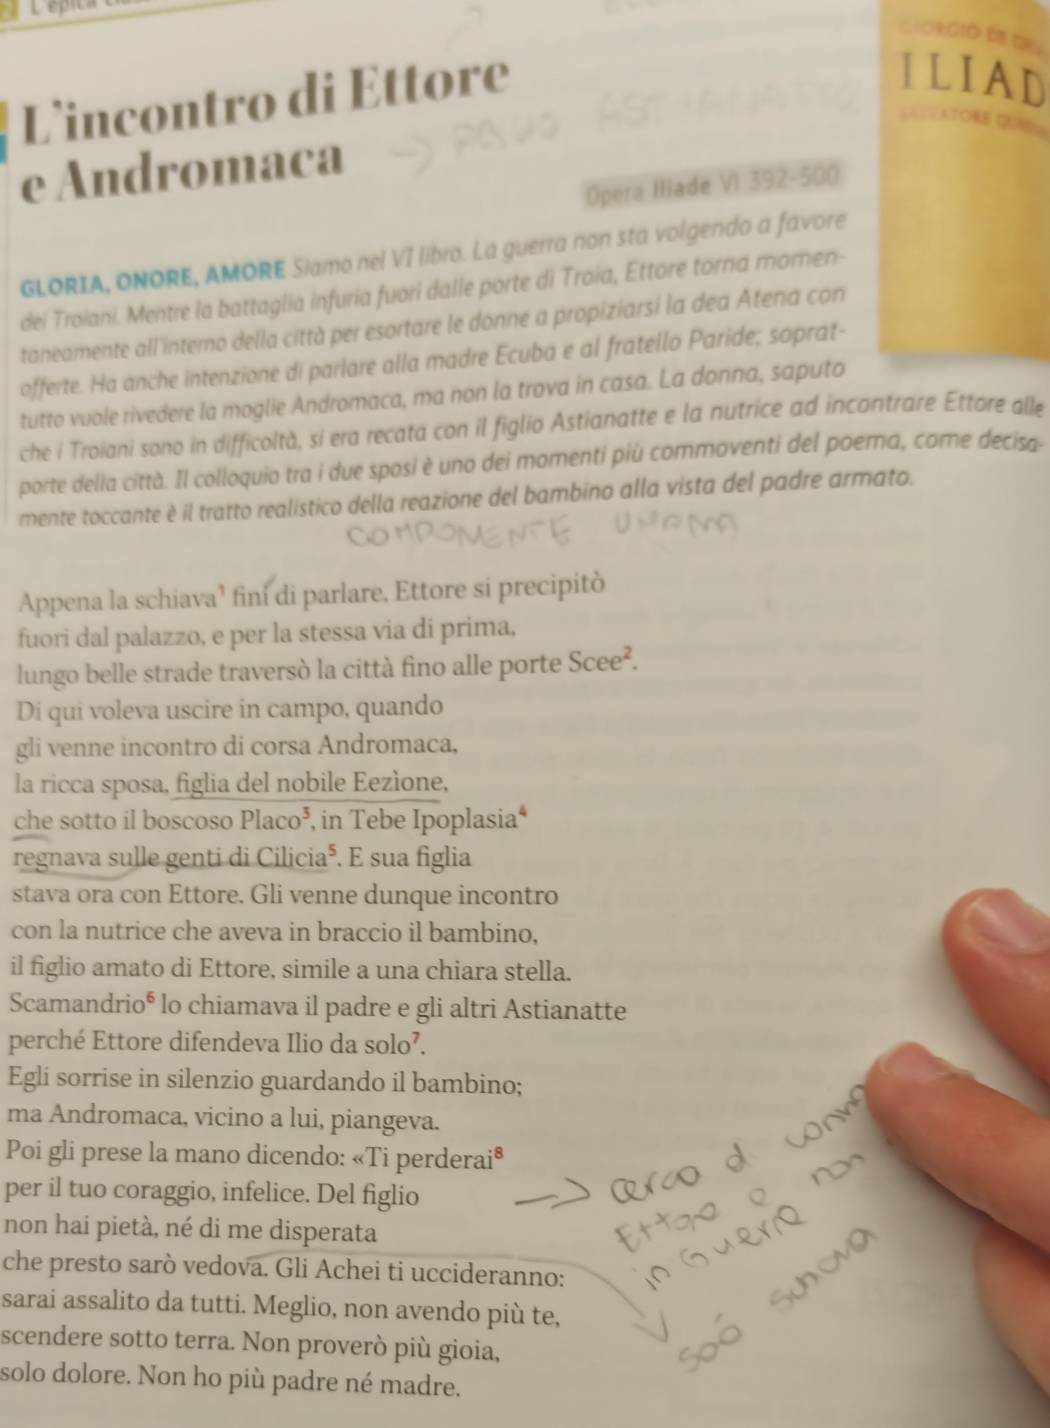 L'incontro di Ettore
e Andromaca
ILIAD
Opera Iliade VI 392-500
GLORIA, ONORE, AMORE Siamo nel VI libro. La guerra non sta volgendo a favore
dei Troiani. Mentre la battaglia infuria fuori dalle porte di Troia, Ettore torna momen-
taneamente all'interno della città per esortare le donne a propiziarsi la dea Atena con
offerte. Ha anche intenzione di parlare alla madre Ecuba e al fratello Paride; soprat-
tutto vuole rivedere la moglie Andromaca, ma non la trova in casa. La donna, saputo
che i Troiani sono in difficoltà, si era recata con il figlio Astianatte e la nutrice ad incontrare Ettore alle
porte della città. Il colloquio tra i due sposi è uno dei momenti più commoventi del poema, come decisa-
mente toccante è il tratto realistico della reazione del bambino alla vista del padre armato.
COMPONENTE UMANA
Appena la schiava¹ finì di parlare, Ettore si precipitò
fuori dal palazzo, e per la stessa via di prima,
lungo belle strade traversò la città fino alle porte Scee².
Di qui voleva uscire in campo, quando
gli venne incontro di corsa Andromaca,
la ricca sposa, figlia del nobile Eezìone,
che sotto il boscoso Placo³, in Tebe Ipoplasia⁴
regnava sulle genti di Cilicia⁵. E sua figlia
stava ora con Ettore. Gli venne dunque incontro
con la nutrice che aveva in braccio il bambino,
il figlio amato di Ettore, simile a una chiara stella.
Scamandrio⁶ lo chiamava il padre e gli altri Astianatte
perché Ettore difendeva Ilio da solo⁷.
Egli sorrise in silenzio guardando il bambino;
ma Andromaca, vicino a lui, piangeva.
Poi gli prese la mano dicendo: «Ti perderai⁸
per il tuo coraggio, infelice. Del figlio
non hai pietà, né di me disperata
che presto sarò vedova. Gli Achei ti uccideranno:
sarai assalito da tutti. Meglio, non avendo più te,
scendere sotto terra. Non proverò più gioia,
solo dolore. Non ho più padre né madre.
→ cerca di
Ettore
in guerra
schiava